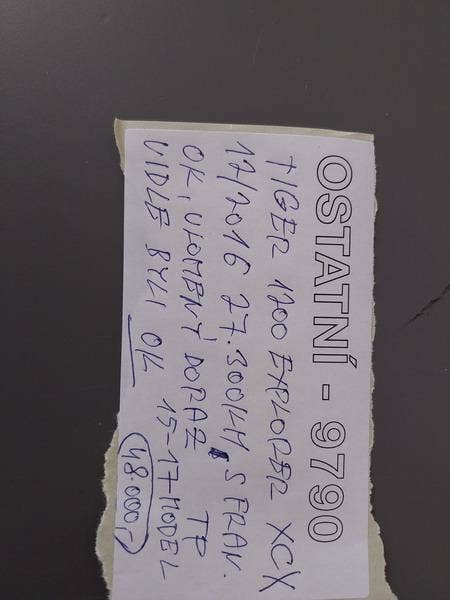 OSTATNÍ - 9790
TIGER 1200 EXPLORER XCX
12/2016 27.300KM, SERAN.
OK, ULOMENÝ DORAZ TP
VIDLE BYLI OK 15-17 MODEL
48.000,-